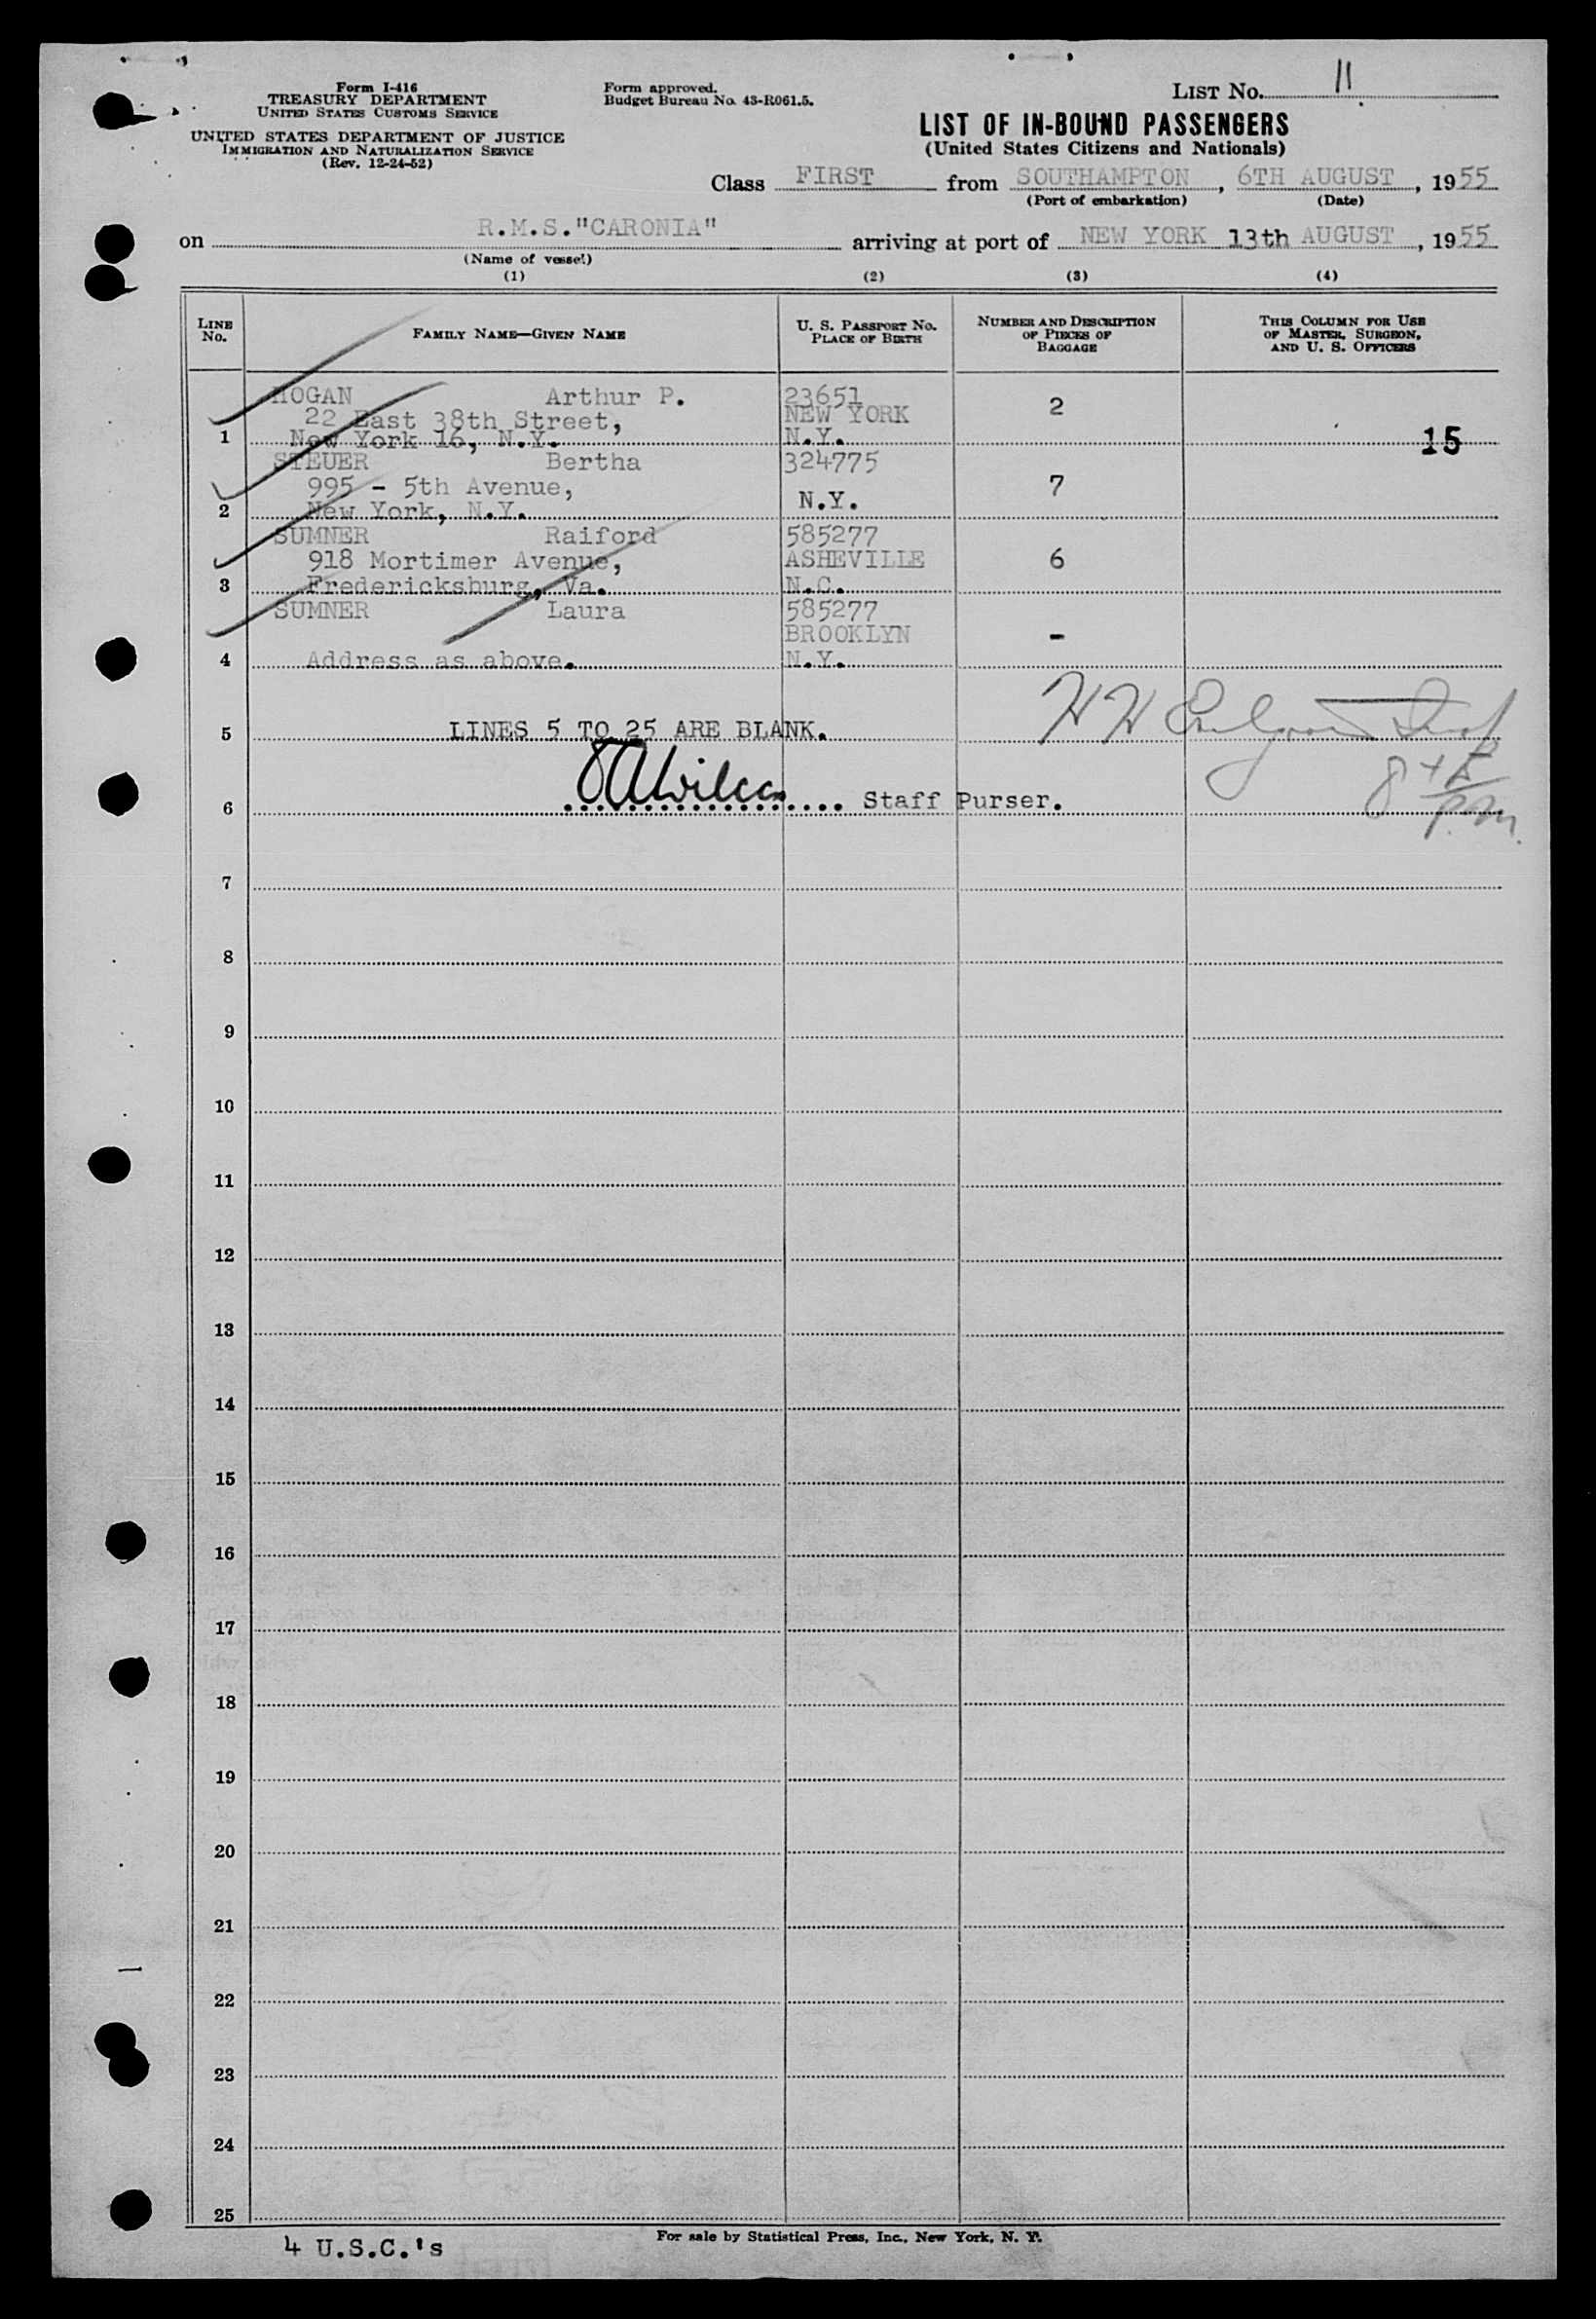 Form I-416
TREASURY DEPARTMENT
UNITED STATES CUSTOMS SERVICE
UNITED STATES DEPARTMENT OF JUSTICE
IMMIGRATION AND NATURALIZATION SERVICE
(Rev. 12-24-52)
Form approved.
Budget Bureau No. 43-R061.5.
LIST No. 11
LIST OF IN-BOUND PASSENGERS
(United States Citizens and Nationals)
Class FIRST from SOUTHAMPTON, 6TH AUGUST, 1955
(Port of embarkation) (Date)
on R.M.S."CARONIA" arriving at port of NEW YORK 13th AUGUST, 1955
(Name of vessel)
(1) (2) (3) (4)
LINE No.
FAMILY NAME—GIVEN NAME
U. S. PASSPORT No.
PLACE OF BIRTH
NUMBER AND DESCRIPTION
OF PIECES OF
BAGGAGE
THIS COLUMN FOR USE
OF MASTER, SURGEON,
AND U. S. OFFICERS
HOGAN Arthur P. 23651
22 East 38th Street, NEW YORK 2
1 New York 16, N.Y. N.Y. 15
STEUER Bertha 324775
995 - 5th Avenue, N.Y. 7
2 New York, N.Y.
SUMNER Raiford 585277
918 Mortimer Avenue, ASHEVILLE 6
3 Fredericksburg, Va. N.C.
SUMNER Laura 585277
BROOKLYN -
4 Address as above. N.Y.
5 LINES 5 TO 25 ARE BLANK.
6 Staff Purser.
7
8
9
10
11
12
13
14
15
16
17
18
19
20
21
22
23
24
25
4 U.S.C.'s
For sale by Statistical Press, Inc., New York, N. Y.